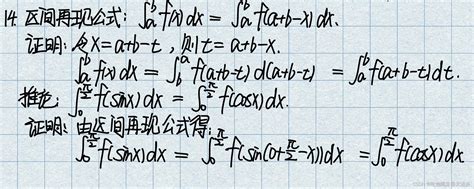 14 区间再现公式: ∫_a^b f(x) dx = ∫_a^b f(a+b-x) dx.
证明: 令X=a+b-t , 则t=a+b-x.
∫_a^b f(x) dx = ∫_b^a f(a+b-t) d(a+b-t) = ∫_a^b f(a+b-t) dt.
推论: ∫_0^{π/2} f(sinx) dx = ∫_0^{π/2} f(cosx) dx.
证明: 由区间再现公式得:
∫_0^{π/2} f(sinx) dx = ∫_0^{π/2} f(sin(0+π/2-x)) dx = ∫_0^{π/2} f(cosx) dx